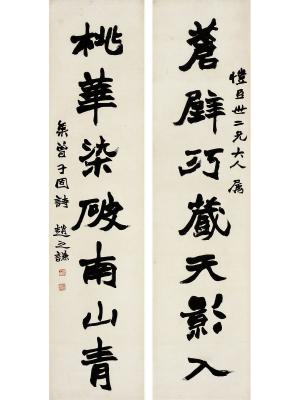 愷臣世二兄大人屬
蒼壁巧藏天影入
桃華染破南山青
集曾子固詩 趙之謙